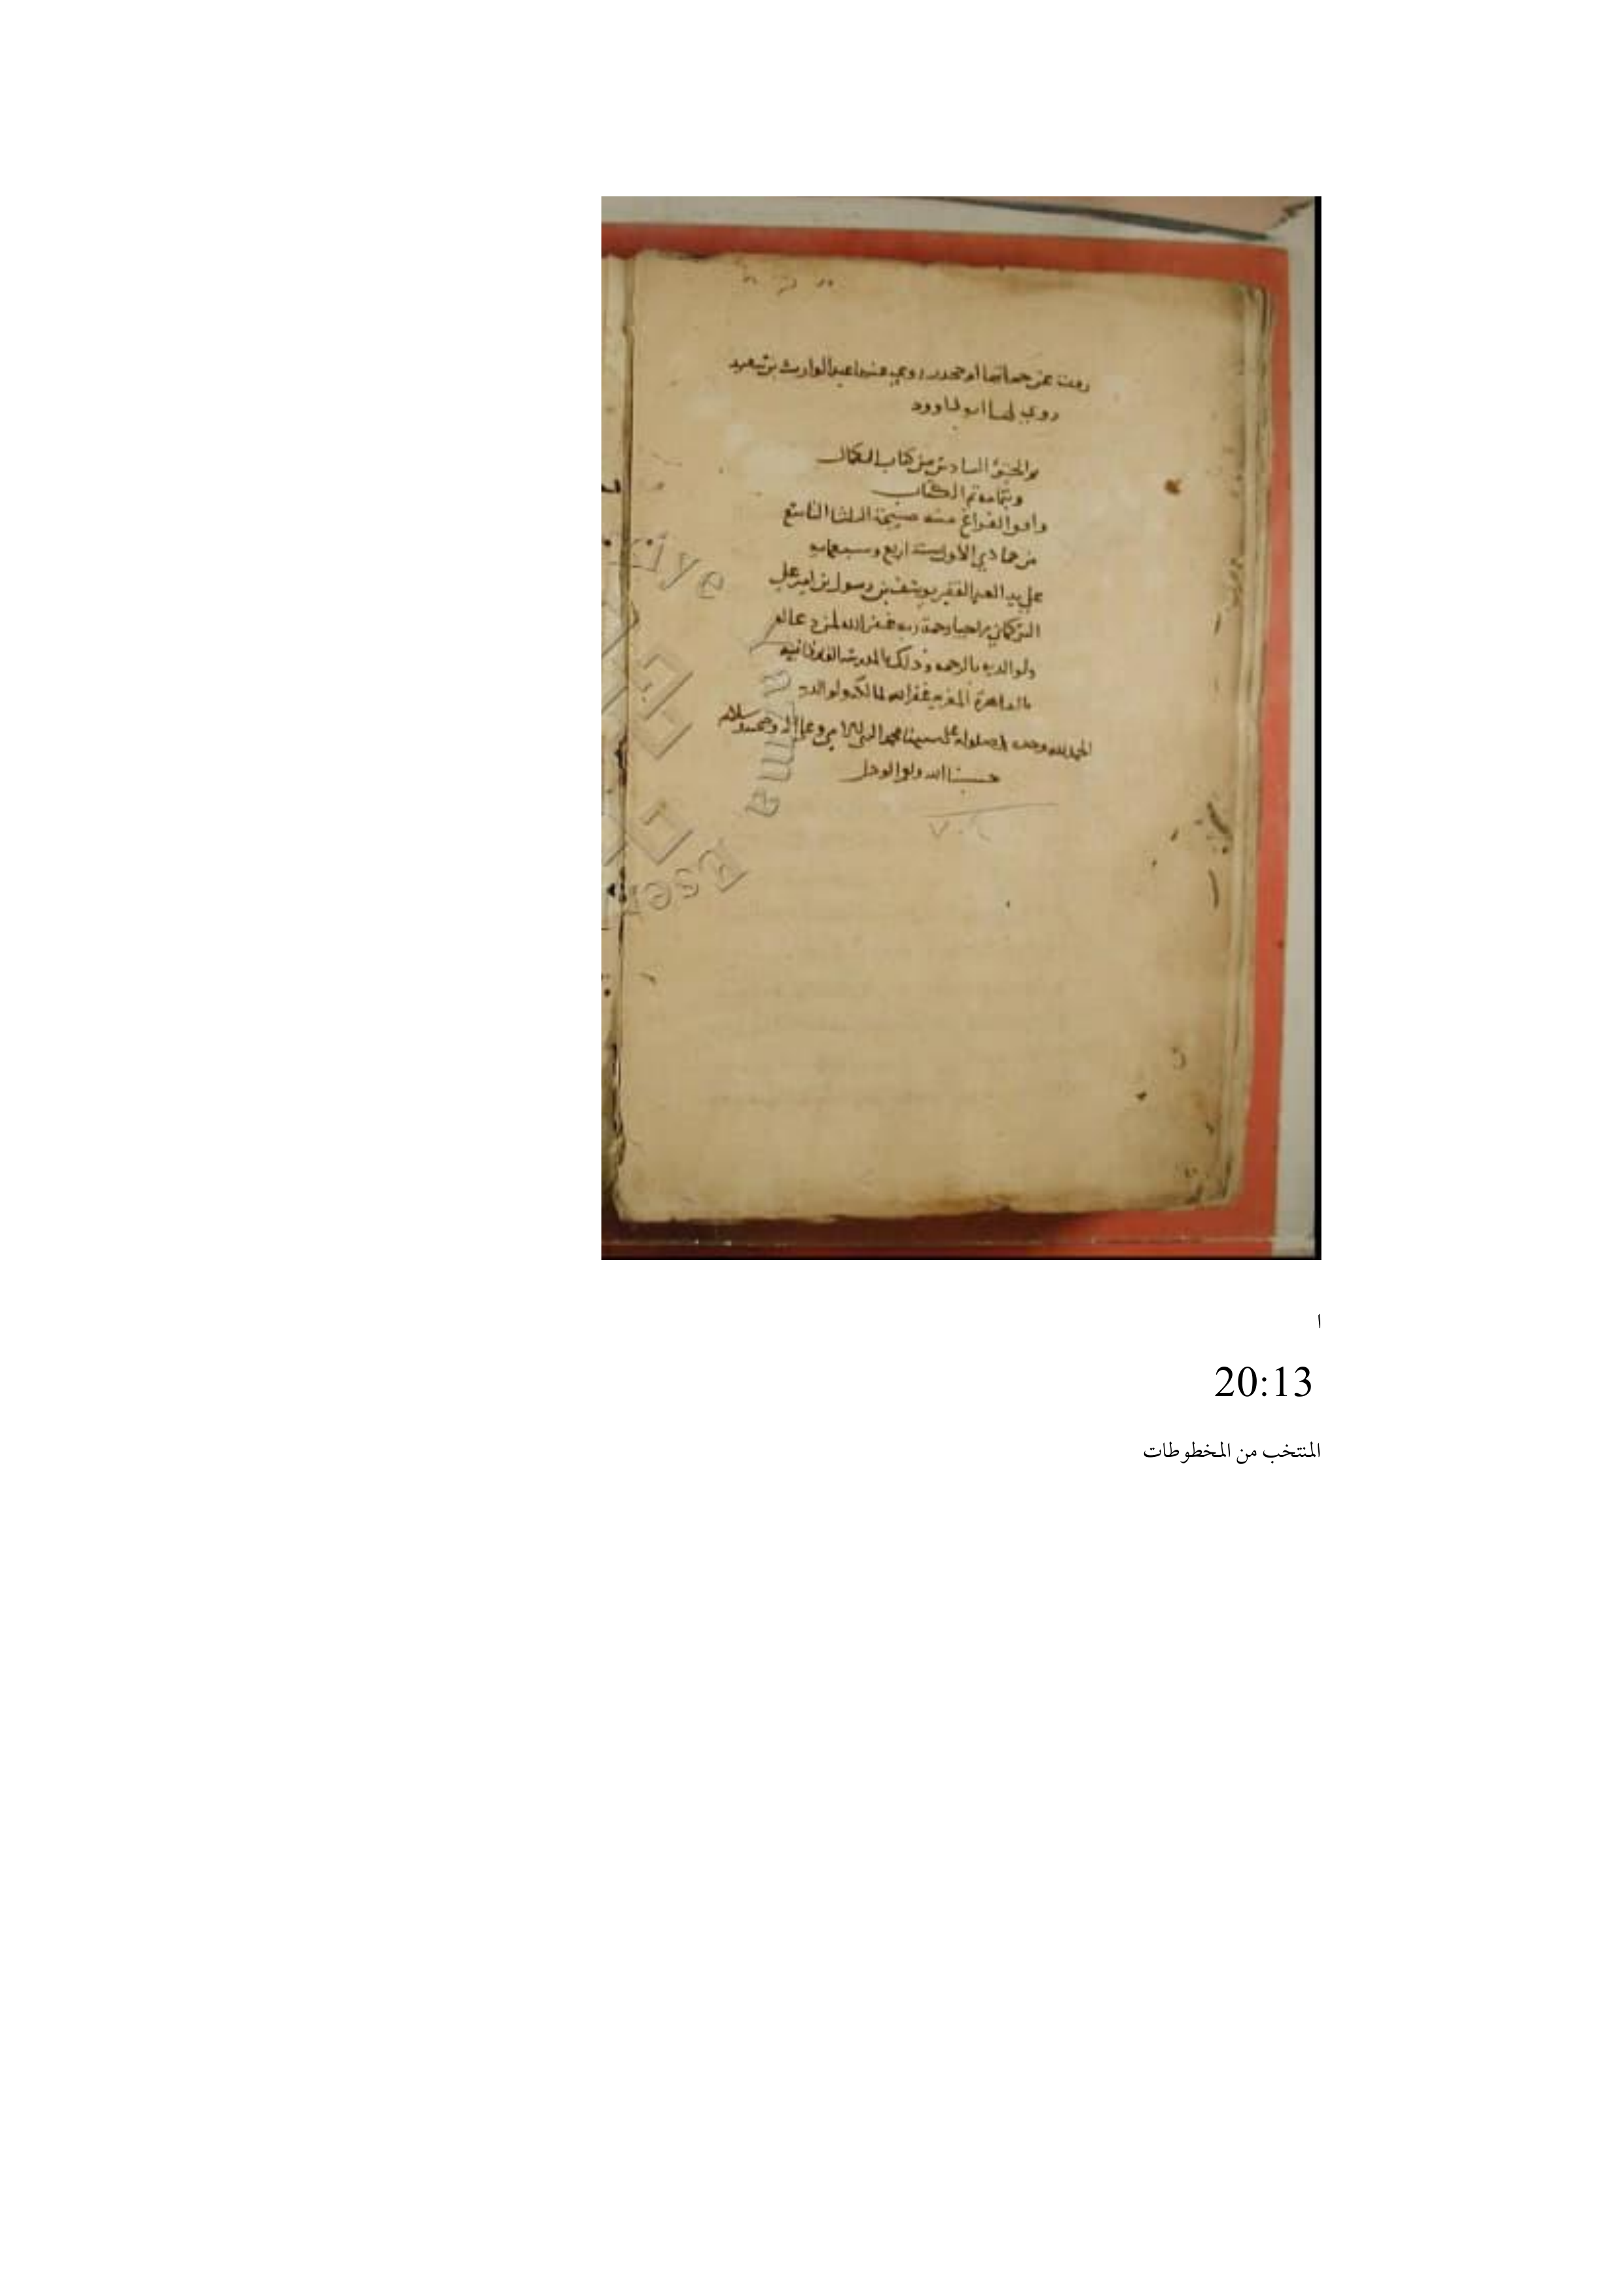 روت عن حماتها ام جحدر روي عنها عبد الوارث بن سعيد
روي لها ابو داوود
الجزؤ السادس من كتاب الكمال
وبتمامه تم الكتاب
وافق الفراغ منه صبيحة الثلثا التاسع
من جمادي الاول سنة اربع وسبعمايه
علي يد العبد الفقير يوسف بن رسول بن امير علي
التركماني رحمة ربه غفر الله لمن دعا له
ولوالديه بالرحمه وذلك بالمدرسة
بالقاهرة المعزيه غفر الله لمالكه ولوالديه
الحمد لله وحده وصلواته على سيدنا محمد النبي الامي وعلى اله وصحبه وسلامه
حسبنا الله ونعم الوكيل
٧٠٤
ا
20:13
المنتخب من المخطوطات